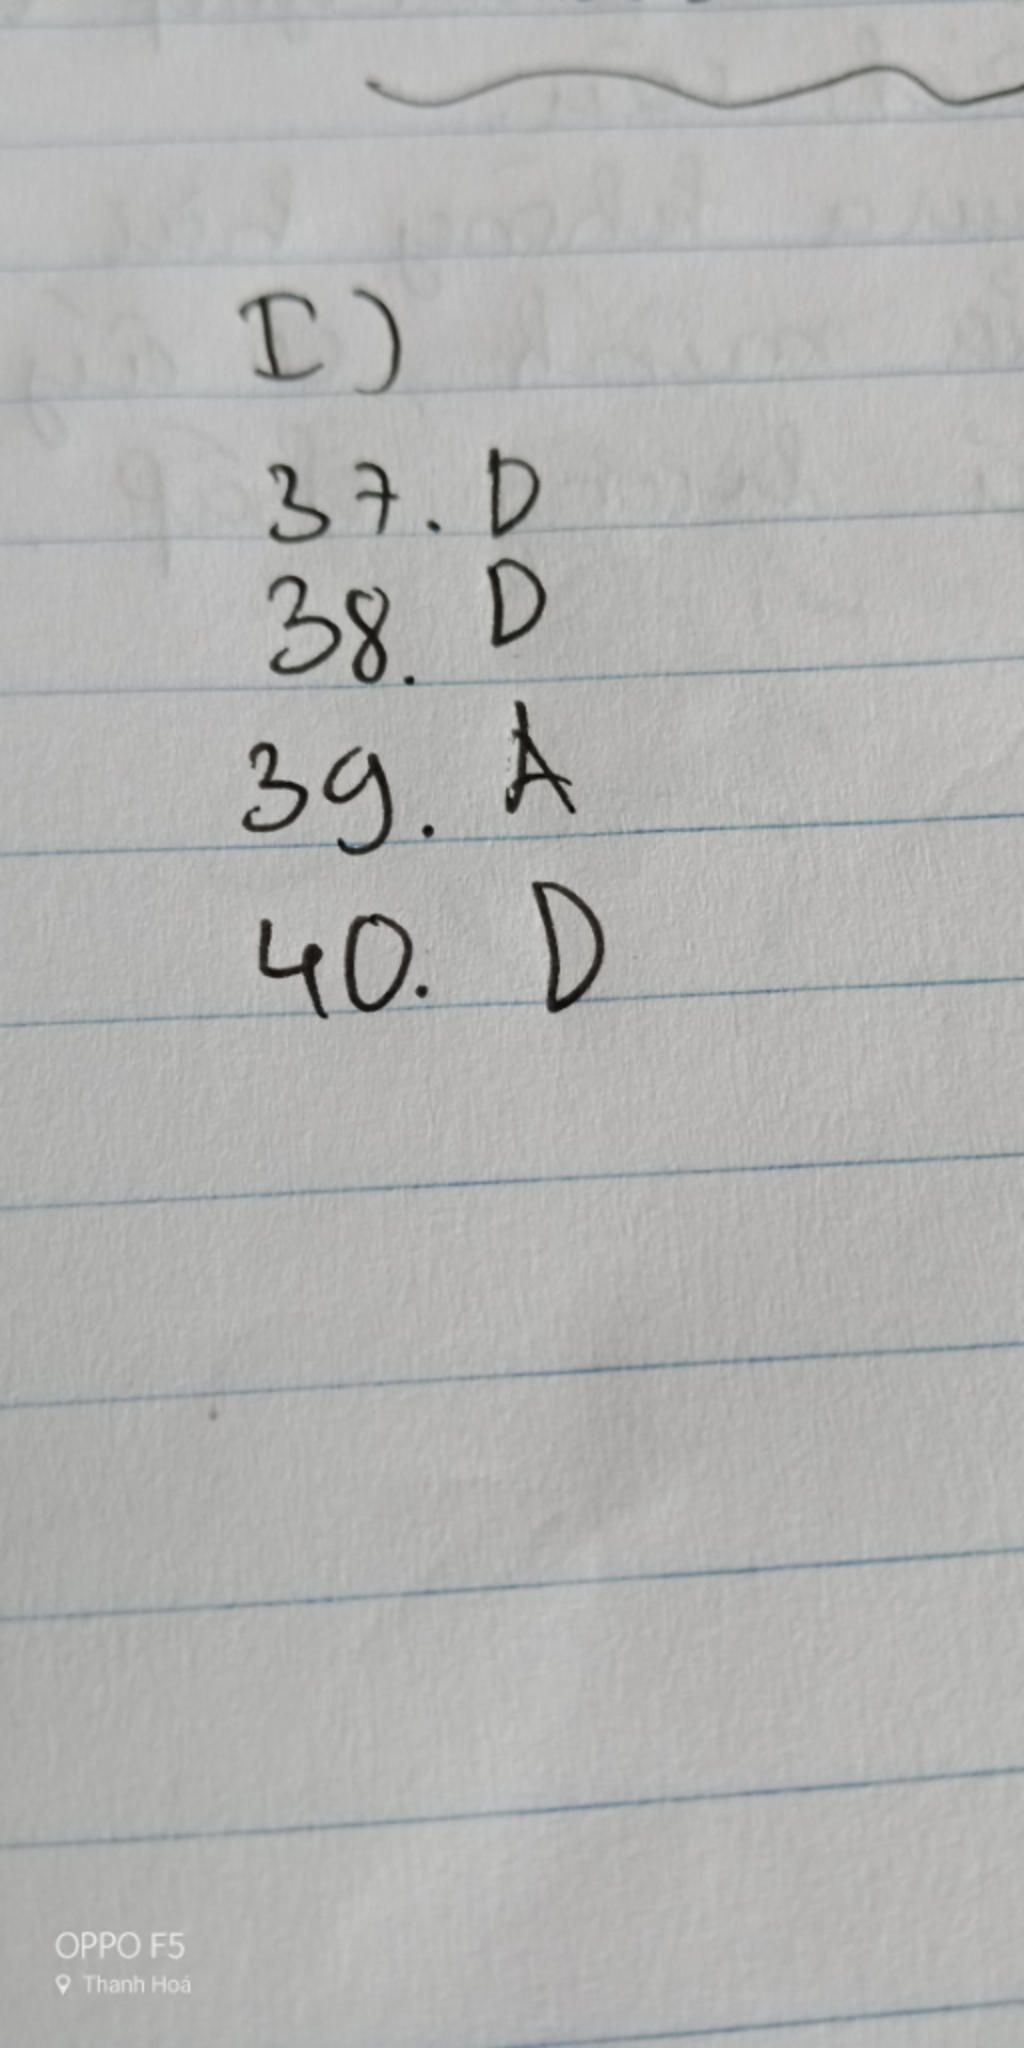 I)
37. D
38. D
39. A
40. D
OPPO F5
Thanh Hoá